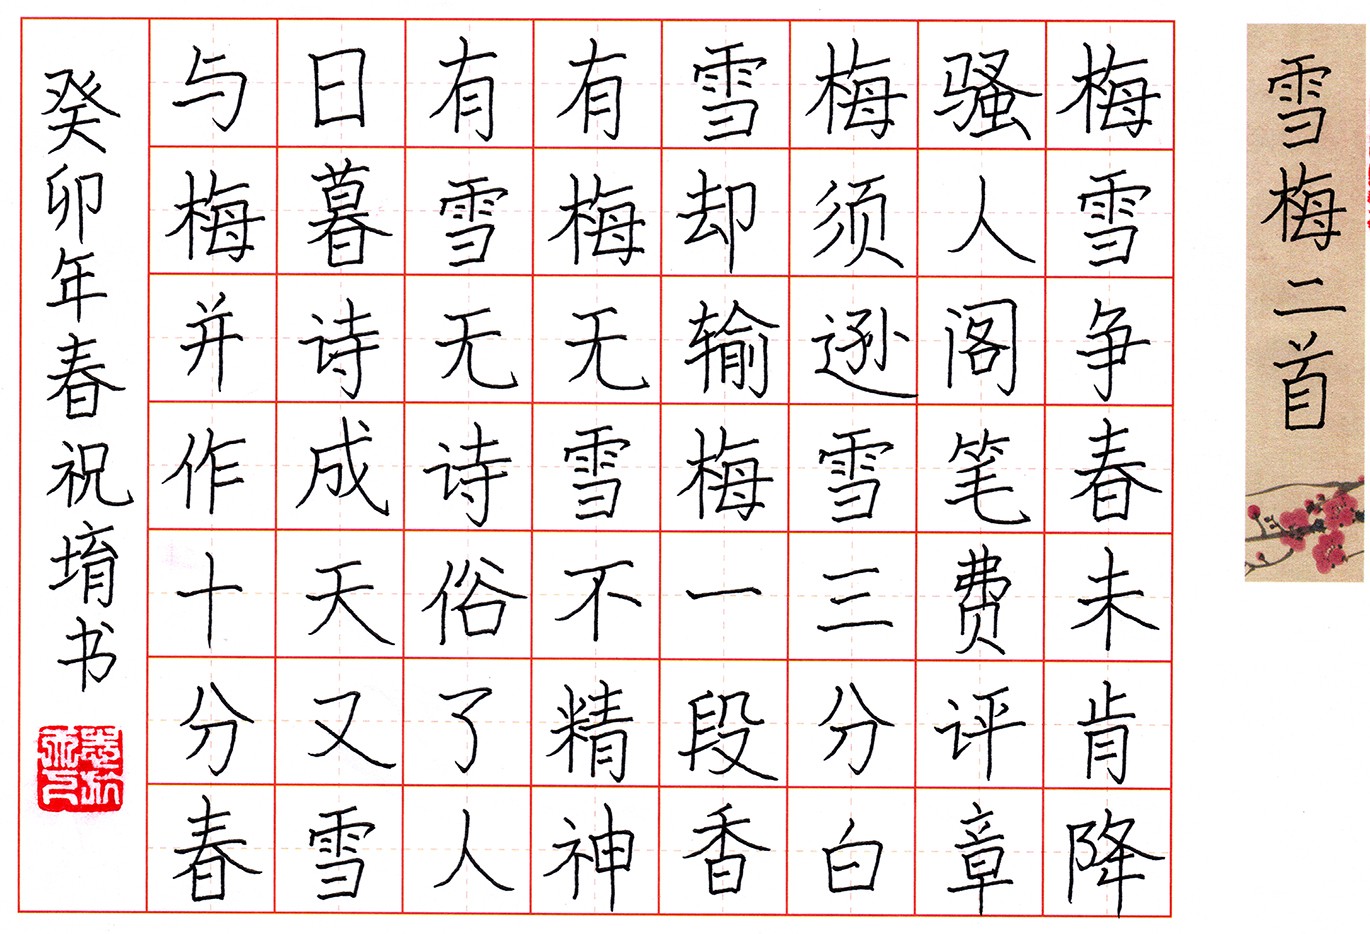 雪梅二首
梅雪争春未肯降
骚人阁笔费评章
梅须逊雪三分白
雪却输梅一段香
有梅无雪不精神
有雪无诗俗了人
日暮诗成天又雪
与梅并作十分春
癸卯年春祝堉书